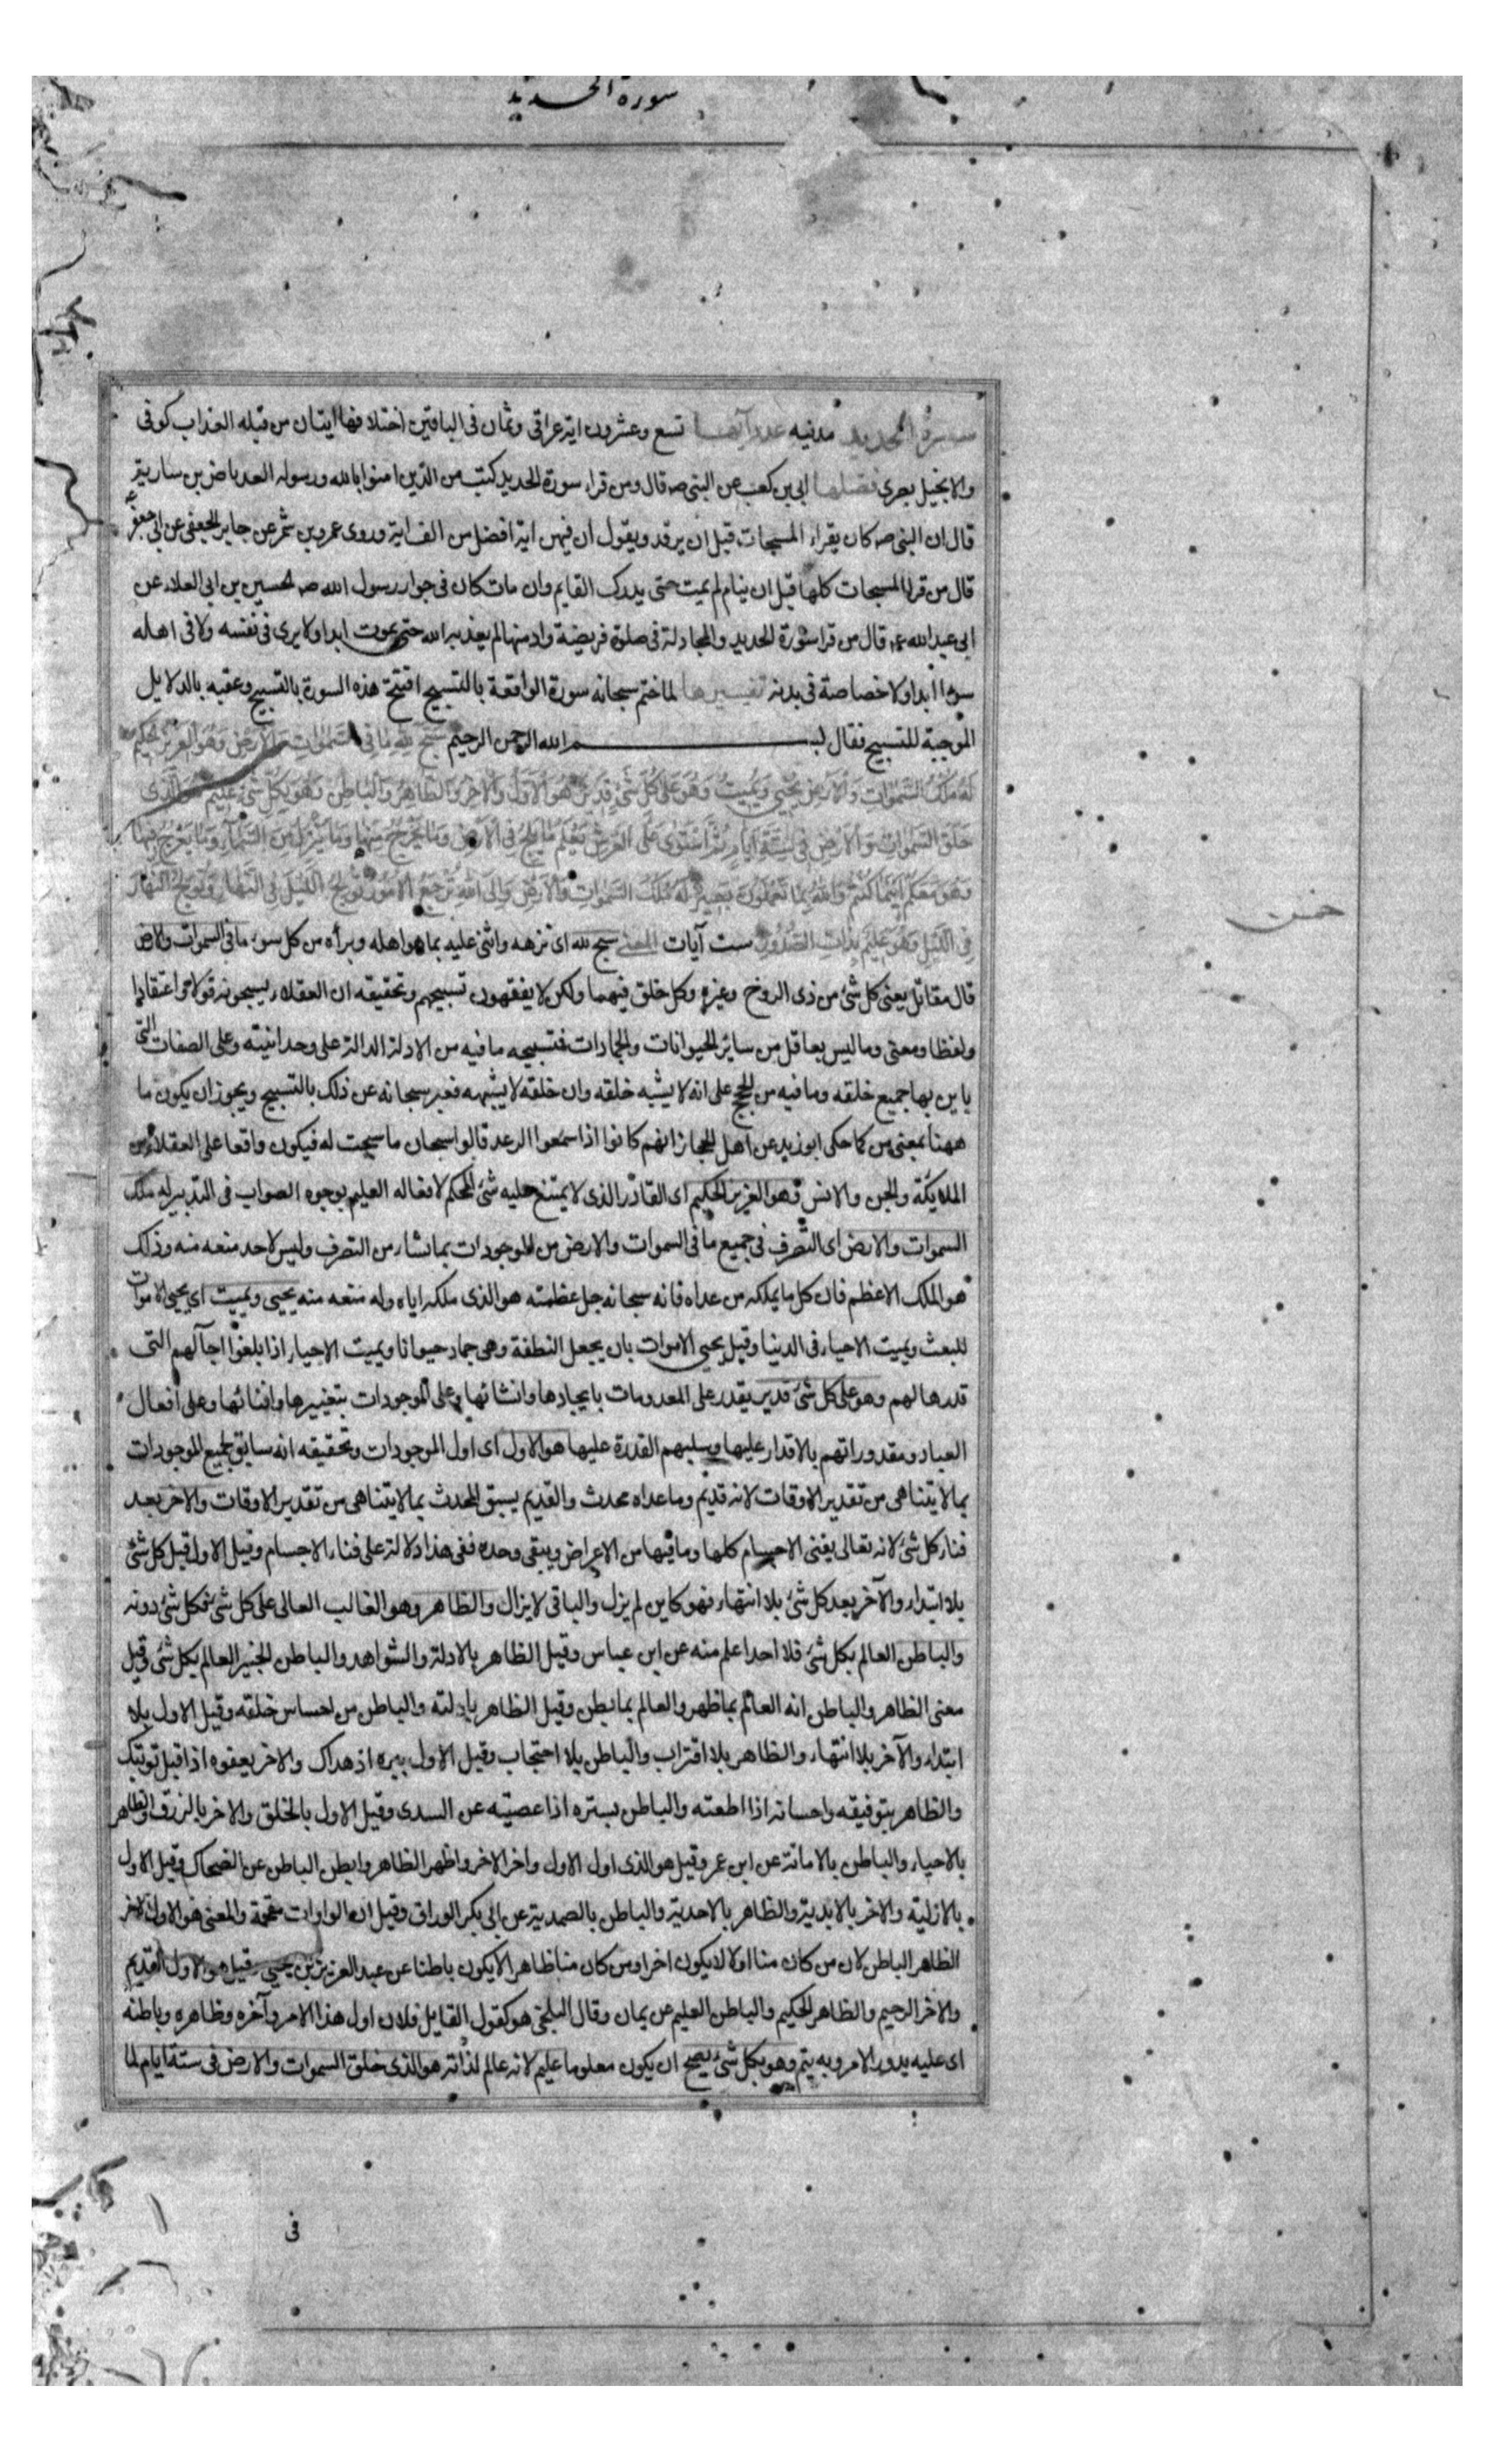 سورة الحديد
سورة الحديد مدنيه عدد آيها تسع وعشرون اية عراقى وثمان فى الباقين اختلافها ايتان من قبله العذاب كوفى
والانجيل بصرى فضلها ابى بن كعب عن النبى صـ قال ومن قراء سورة الحديد كتب من الذين امنوا بالله ورسوله العرباض بن سارية
قال ان النبى صـ كان يقراء المسبحات قبل ان يرقد ويقول ان فيهن اية افضل من الف اية وروى عمرو بن شمر عن جابر الجعفى عن ابى جعفر
قال من قرا المسبحات كلها قبل ان ينام لم يمت حتى يدرك القايم وان مات كان فى جوار رسول الله صـ الحسين بن ابى العلاء عن
ابى عبد الله ع قال من قرا سورة الحديد والمجادلة فى صلوة فريضة وادمنها لم يعذبه الله حتى يموت ابدا ولا يرى فى نفسه ولا فى اهله
سوءا ابدا ولا خصاصة فى بدنه تفسيرها لما ختم سبحانه سورة الواقعة بالتسبيح افتتح هذه السورة بالتسبيح وعقبه بالدلايل
الموجبة للتسبيح فقال بسم الله الرحمن الرحيم سبح لله ما فى السموات والارض وهو العزيز الحكيم
له ملك السموات والارض يحيى ويميت وهو على كل شئ قدير هو الاول والاخر والظاهر والباطن وهو بكل شئ عليم هو الذى
خلق السموات والارض فى ستة ايام ثم استوى على العرش يعلم ما يلج فى الارض وما يخرج منها وما ينزل من السماء وما يعرج فيها
وهو معكم اينما كنتم والله بما تعملون بصير له ملك السموات والارض والى الله ترجع الامور يولج الليل فى النهار ويولج النهار
فى الليل وهو عليم بذات الصدور ست آيات المعنى سبح لله اى نزهه واثنى عليه بما هو اهله وبرأه من كل سوء ما فى السموات والارض
قال مقاتل يعنى كل شئ من ذى الروح وغيره وكل خلق فيهما ولكن لا يفقهون تسبيحهم وتحقيقه ان العقلاء يسبحونه قولا واعتقادا
ولفظا ومعنى وما ليس بعاقل من ساير الحيوانات والجمادات فتسبيحه ما فيه من الادلة الدالة على وحدانيته وعلى الصفات التى
باين بها جميع خلقه وما فيه من الحجج على انه لا يشبه خلقه وان خلقه لا يشبهه فعبر سبحانه عن ذلك بالتسبيح ويجوز ان يكون ما
ههنا بمعنى من كما حكى ابو زيد عن اهل الحجاز انهم كانوا اذا سمعوا الرعد قالوا سبحان ما سبحت له فيكون واقعا على العقلاء من
الملايكة والجن والانس وهو العزيز الحكيم اى القادر الذى لا يمتنع عليه شئ المحكم لافعاله العليم بوجوه الصواب فى التدبير له ملك
السموات والارض اى التصرف فى جميع ما فى السموات والارض من الموجودات بما يشاء من التصرف وليس لاحد منعه منه وذلك
هو الملك الاعظم فان كل ما يملكه من عداه فانه سبحانه جل عظمته هو الذى ملكه اياه وله منعه منه يحيى ويميت اى يحيى الاموات
للبعث ويميت الاحياء فى الدنيا وقيل يحيى الاموات بان يجعل النطفة وهى جماد حيوانا ويميت الاحياء اذا بلغوا اجآلهم التى
قدرها لهم وهو على كل شئ قدير يقدر على المعدومات بايجادها وانشائها وعلى الموجودات بتغييرها وافنائها وعلى افعال
العباد ومقدوراتهم بالاقدار عليها وسلبهم القدرة عليها هو الاول اى اول الموجودات وتحقيقه انه سابق لجميع الموجودات
بما لا يتناهى من تقدير الاوقات لانه قديم وما عداه محدث والقديم يسبق المحدث بما لا يتناهى من تقدير الاوقات والاخر بعد
فناء كل شئ لانه تعالى يفنى الاجسام كلها وما فيها من الاعراض ويبقى وحده ففى هذا دلالة على فناء الاجسام وقيل الاول قبل كل شئ
بلا ابتداء والآخر بعد كل شئ بلا انتهاء فهو كاين لم يزل والباقى لا يزال والظاهر وهو الغالب العالى على كل شئ فكل شئ دونه
والباطن العالم بكل شئ فلا احد اعلم منه عن ابن عباس وقيل الظاهر بالادلة والشواهد والباطن الخبير العالم بكل شئ وقيل
معنى الظاهر والباطن انه العالم بما ظهر والعالم بما بطن وقيل الظاهر بادلته والباطن من احساس خلقه وقيل الاول بلا
ابتداء والآخر بلا انتهاء والظاهر بلا اقتراب والباطن بلا احتجاب وقيل الاول ببره اذ هداك والاخر بعفوه اذا قبل توبتك
والظاهر بتوفيقه واحسانه اذا اطعته والباطن بستره اذا عصيته عن السدى وقيل الاول بالخلق والاخر بالرزق والظاهر
بالاحياء والباطن بالاماتة عن ابن عمر وقيل هو الذى اول الاول واخر الاخر واظهر الظاهر وابطن الباطن عن الضحاك وقيل الاول
بالازلية والاخر بالابدية والظاهر بالاحدية والباطن بالصمدية عن ابى بكر الوراق وقيل ان الواوات مقحمة والمعنى هو الاول الاخر
الظاهر الباطن لان من كان منا اولا لا يكون اخرا ومن كان منا ظاهرا لا يكون باطنا عن عبد العزيز بن يحيى وقيل هو الاول القديم
والاخر الرحيم والظاهر الحكيم والباطن العليم عن يمان وقال البلخى هو كقول القايل فلان اول هذا الامر وآخره وظاهره وباطنه
اى عليه يدور الامر وبه يتم وهو بكل شئ يصح ان يكون معلوما عليم لانه عالم لذاته هو الذى خلق السموات والارض فى ستة ايام لما
فى